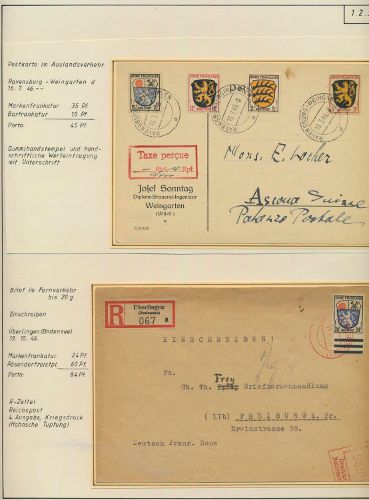 1.2.
Postkarte im Auslandsverkehr
Ravensburg - Weingarten d
10. 7. 46
Markenfrankatur 35 Pf.
Barfrankatur 10 Pf.
Porto: 45 Pf.
Gummihandstempel und hand-
schriftliche Werteintragung
mit Unterschrift
Taxe perçue
Rpf.
Josef Sonntag
Diplom-Brauerei-Ingenieur
Weingarten
(Württ.)
Mons. E.
Ascona Suisse
Postale
Brief im Fernverkehr
bis 20 g
Einschreiben
Überlingen (Bodensee)
19. 10. 46
Markenfrankatur 24 Pf.
Absenderfreistpl. 60 Pf.
Porto: 84 Pf.
R-Zettel
Reichspost
4. Ausgabe, Kriegsdruck
(Hahnsche Tupfung)
R
Überlingen
(Bodensee)
067 a
EINSCHREIBEN!
Frey
Ch. Th. Briefmarkenhandlung
(17b) FREIBURG i. Br.
Erwinstrasse 38.
Deutsch Franz. Zone